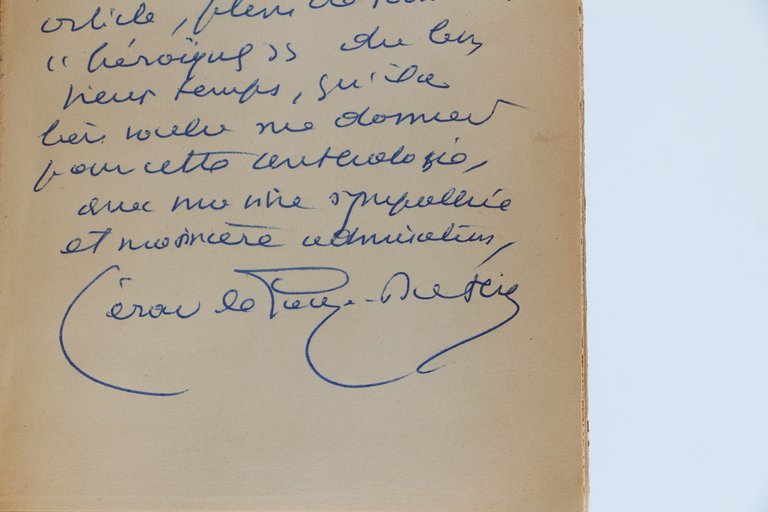 article, plein de
"héroïques" du bon
vieux temps, qu'il a
bien voulu me donner
pour cette anthologie,
avec ma vive sympathie
et ma sincère admiration,